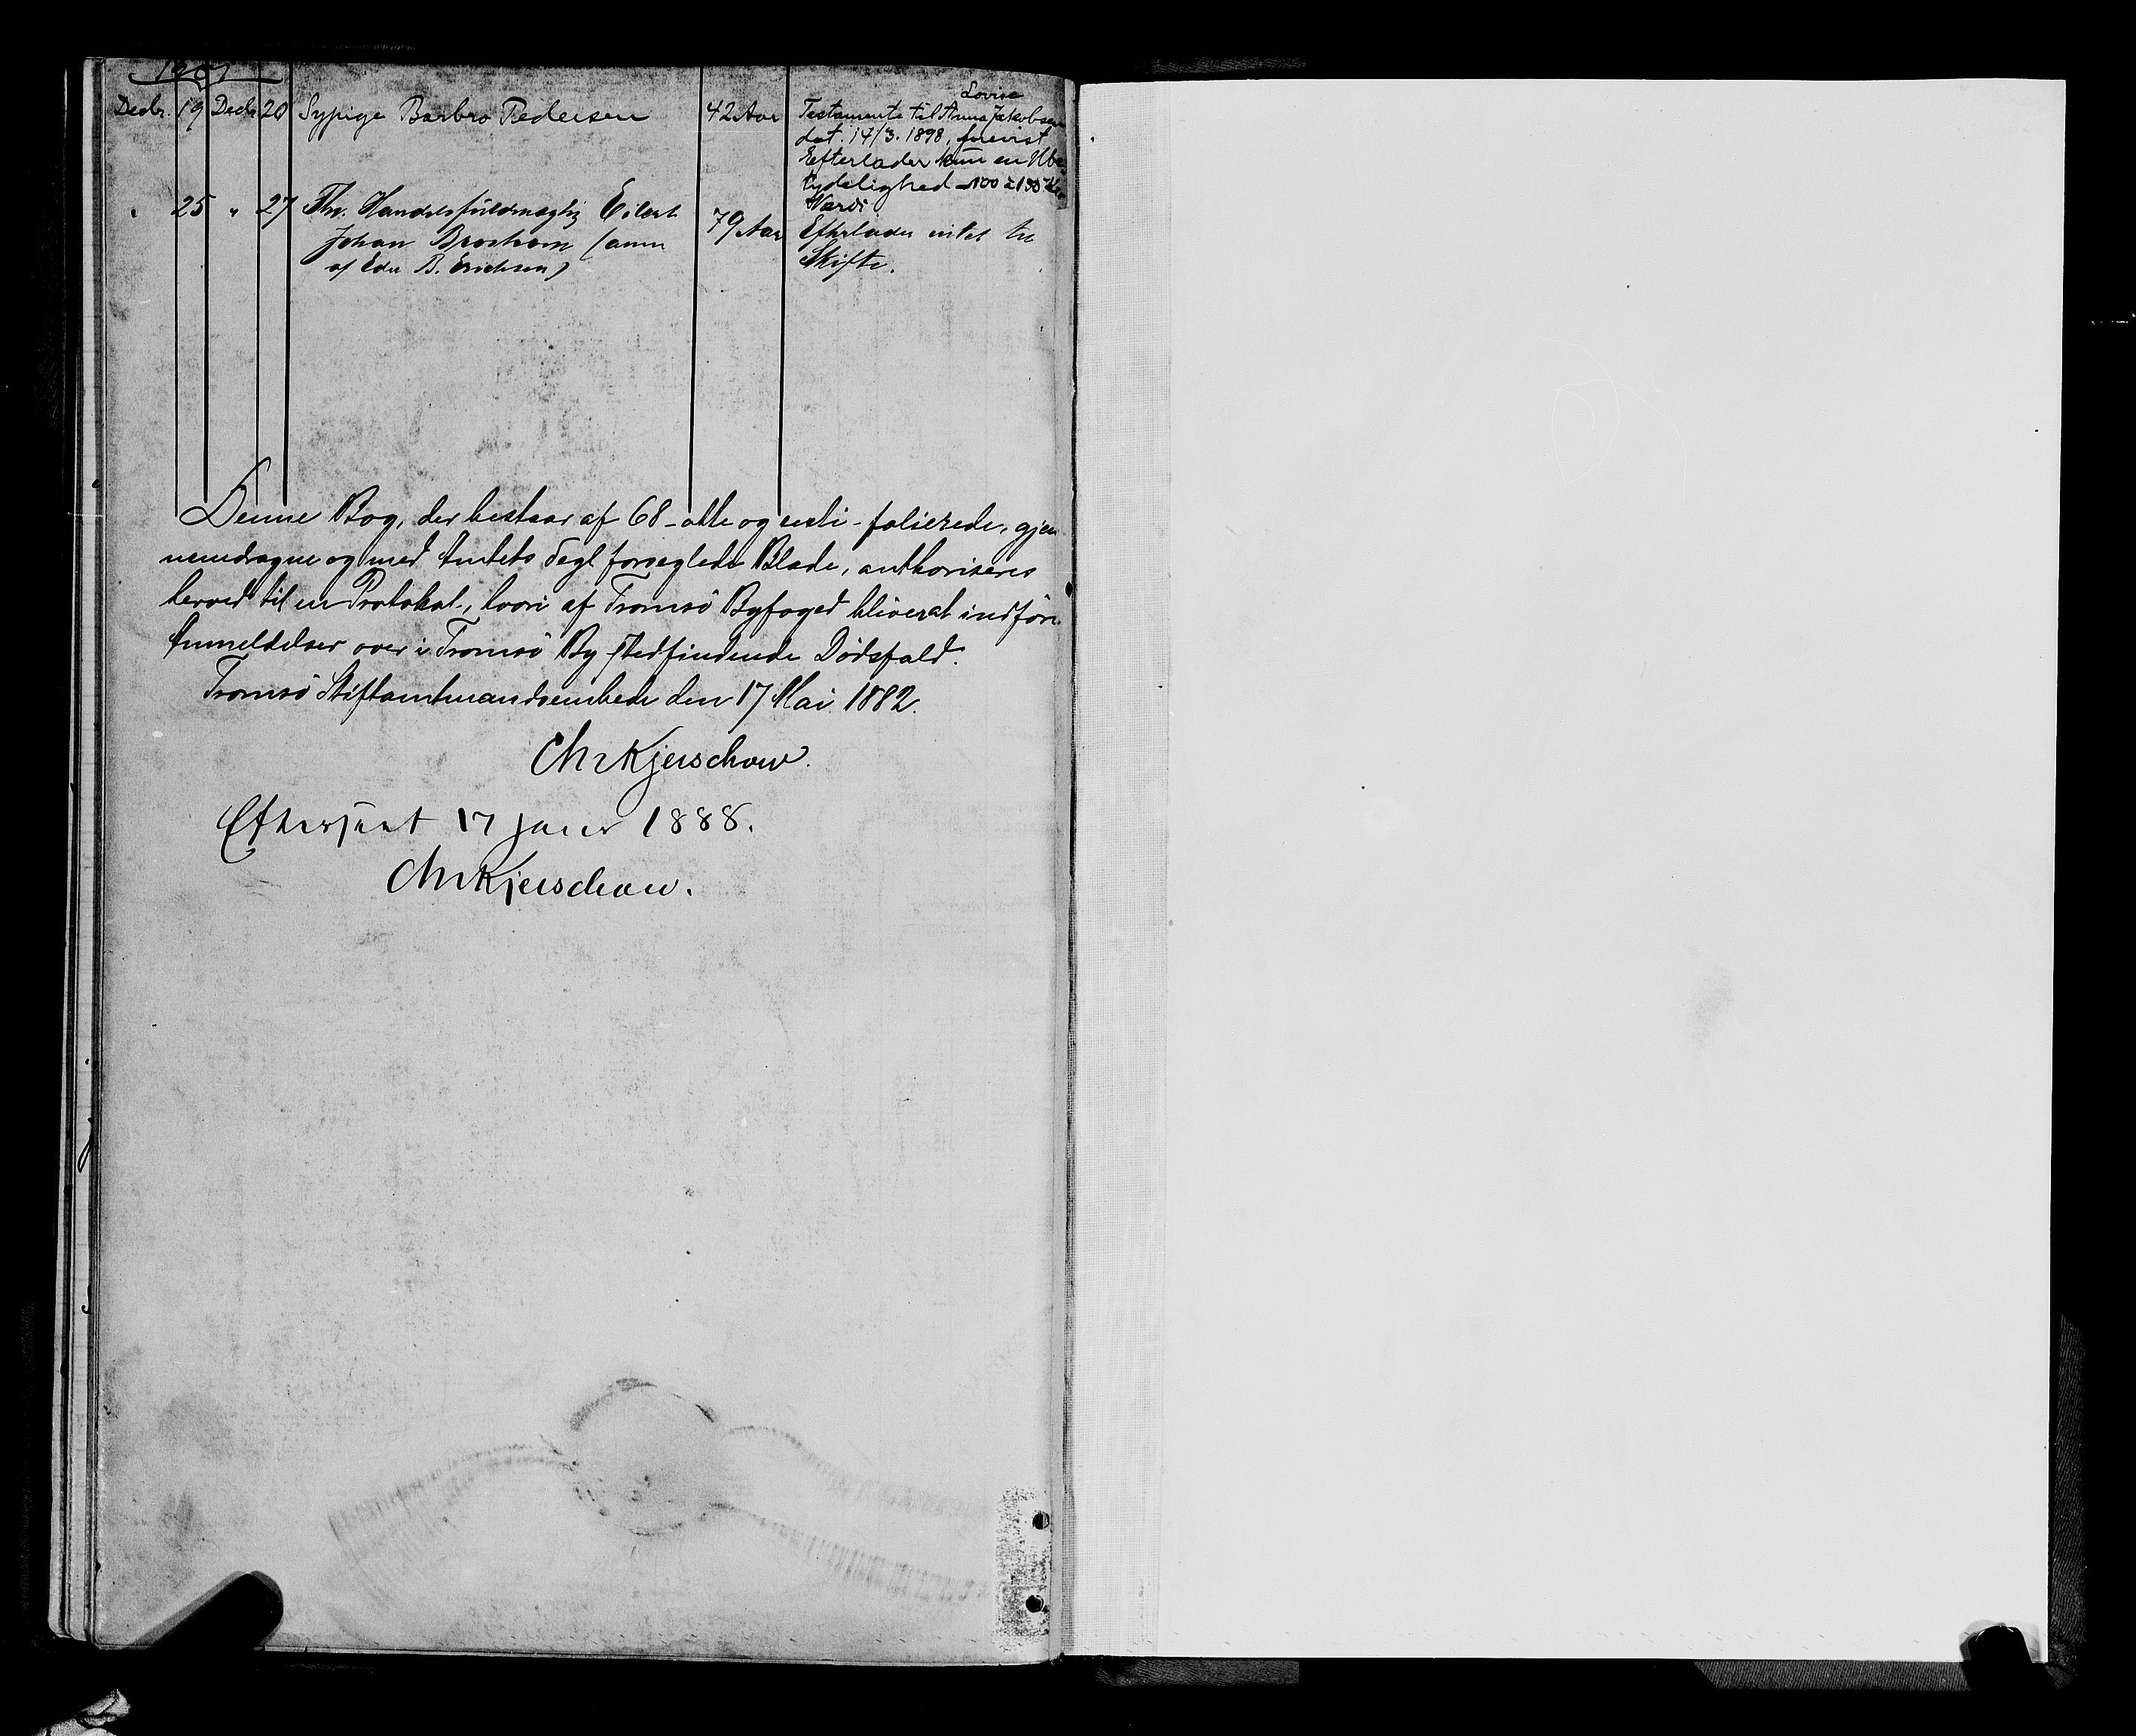 Decbr. 19 Decb 20 Sypige Barbro Pedersen 42 Aar Testamente til Anna Lovise Jakobsen
dat. 14/3. 1898, forevist
Eefterlader kun en Ube-
tydelighed - 100 à 150 Kr.
Værdi
" 25 " 27 Fhv. Handelsfuldmægtig Eilert 79 Aar Efterlader intet til
Johan Brostrøm (anm Skifte.
af Edv B. Erichsen)
Denne Bog, der bestaar af 68 - otte og sexti - folierede, gjen-
nemdragne og med Amtets Segl forseglede Blade, authoriseres
herved til en Protokol, hvori af Tromsö Byfoged bliver at indföre
Anmeldelser over i Tromsö By stedfindende Dödsfald.
Tromsö Stiftamtmandsembede den 17 Mai 1882.
Chr Kjerschow.
Efterseet 17 Janr 1888.
Chr Kjerschow.